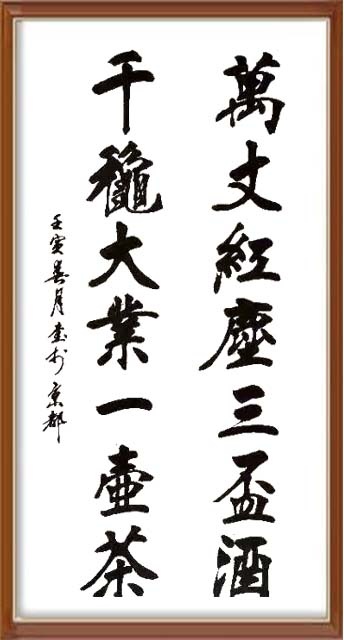 萬丈紅塵三盃酒
千穐大業一壺茶
壬寅春月書於京都